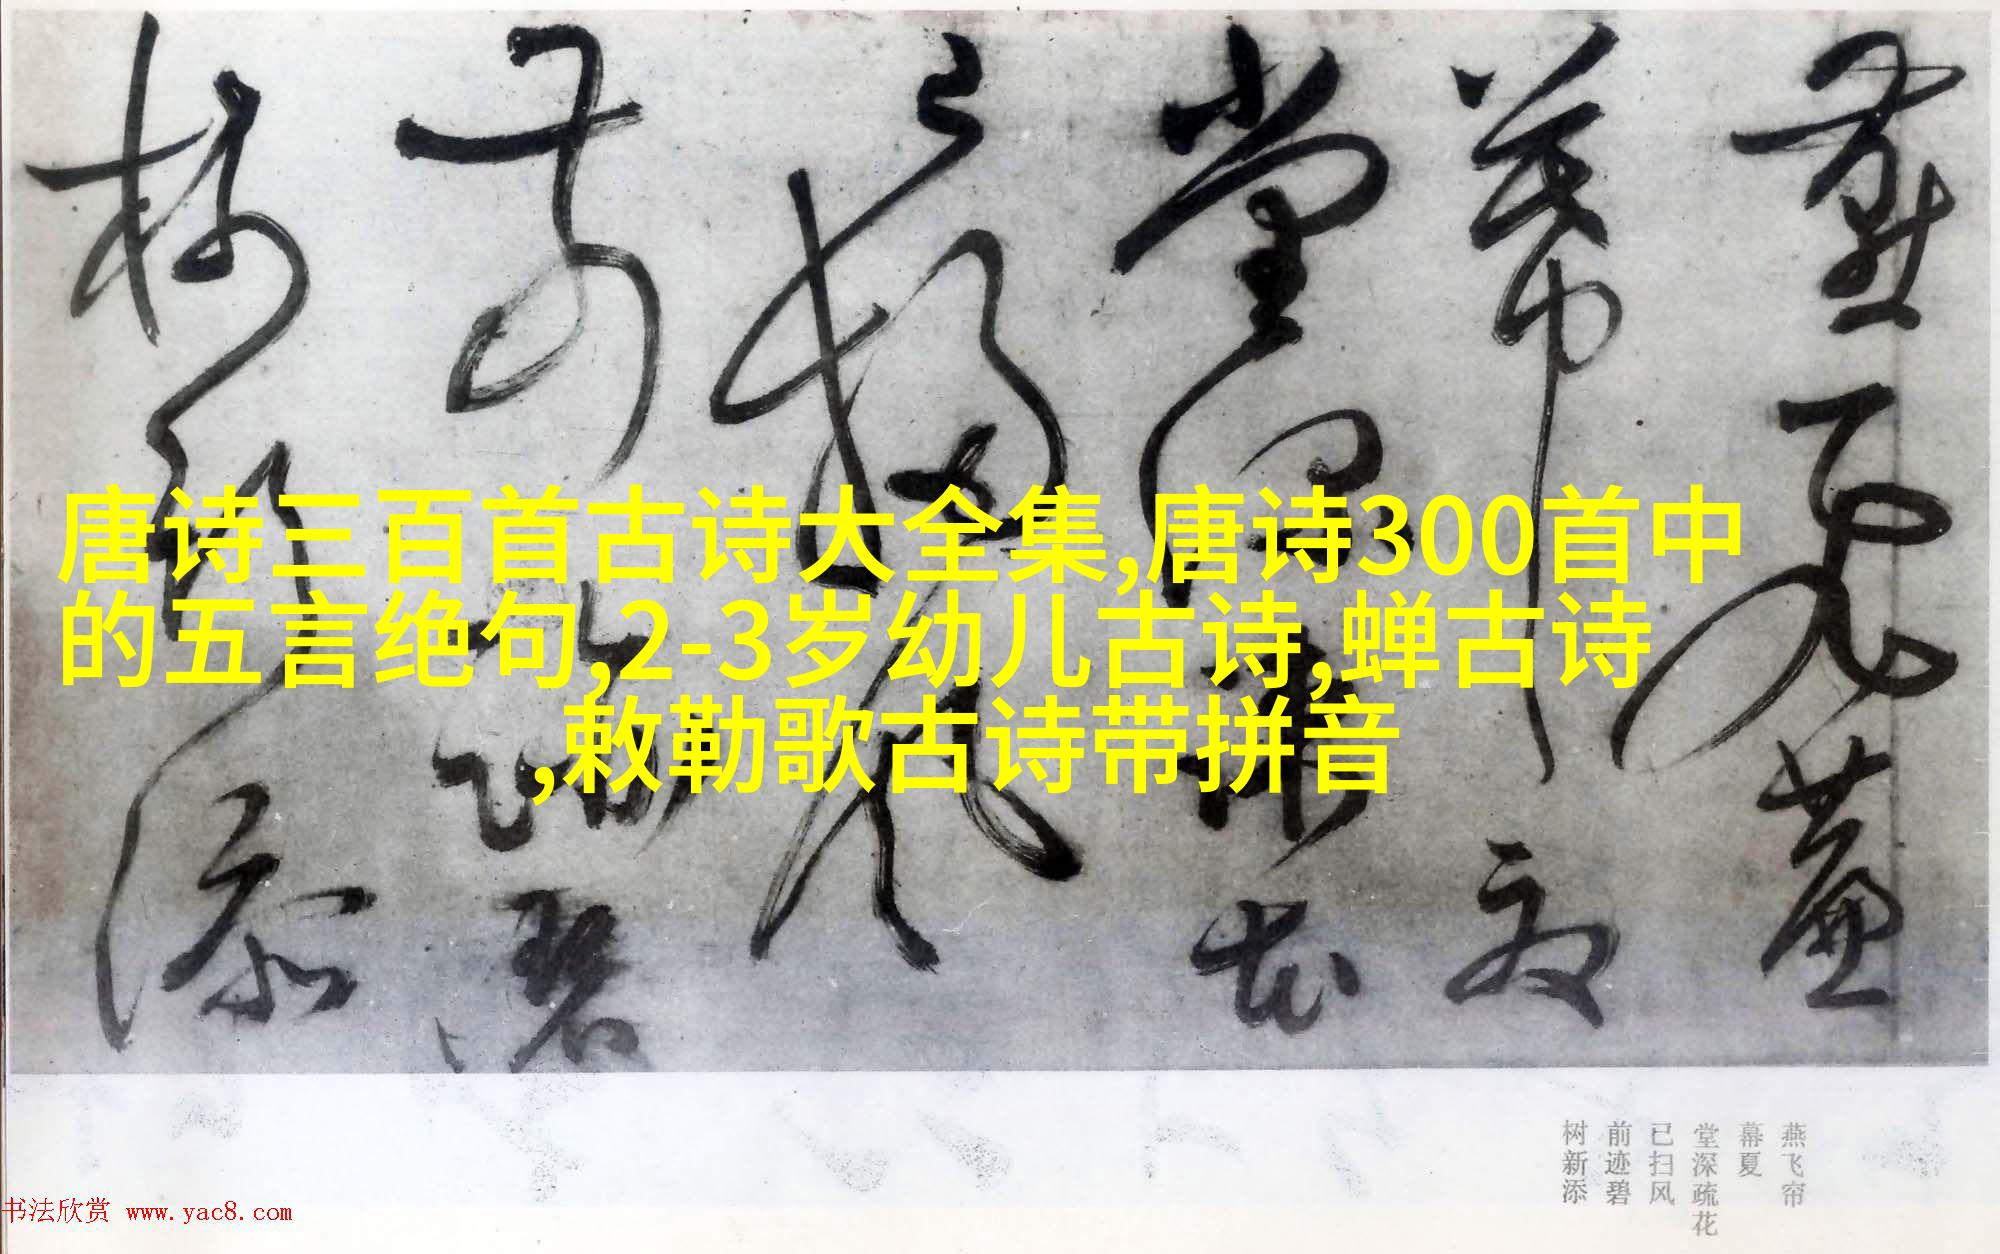 燕飞帘
幕夏
堂深疏花
已扫风
前迹碧
树新添
唐诗三百首古诗大全集,唐诗300首中
的五言绝句,2-3岁幼儿古诗,蝉古诗
,敕勒歌古诗带拼音
燕飞帘
幕夏
堂深疏花
已扫风
前迹碧
树新添
书法欣赏 www.yac8.com